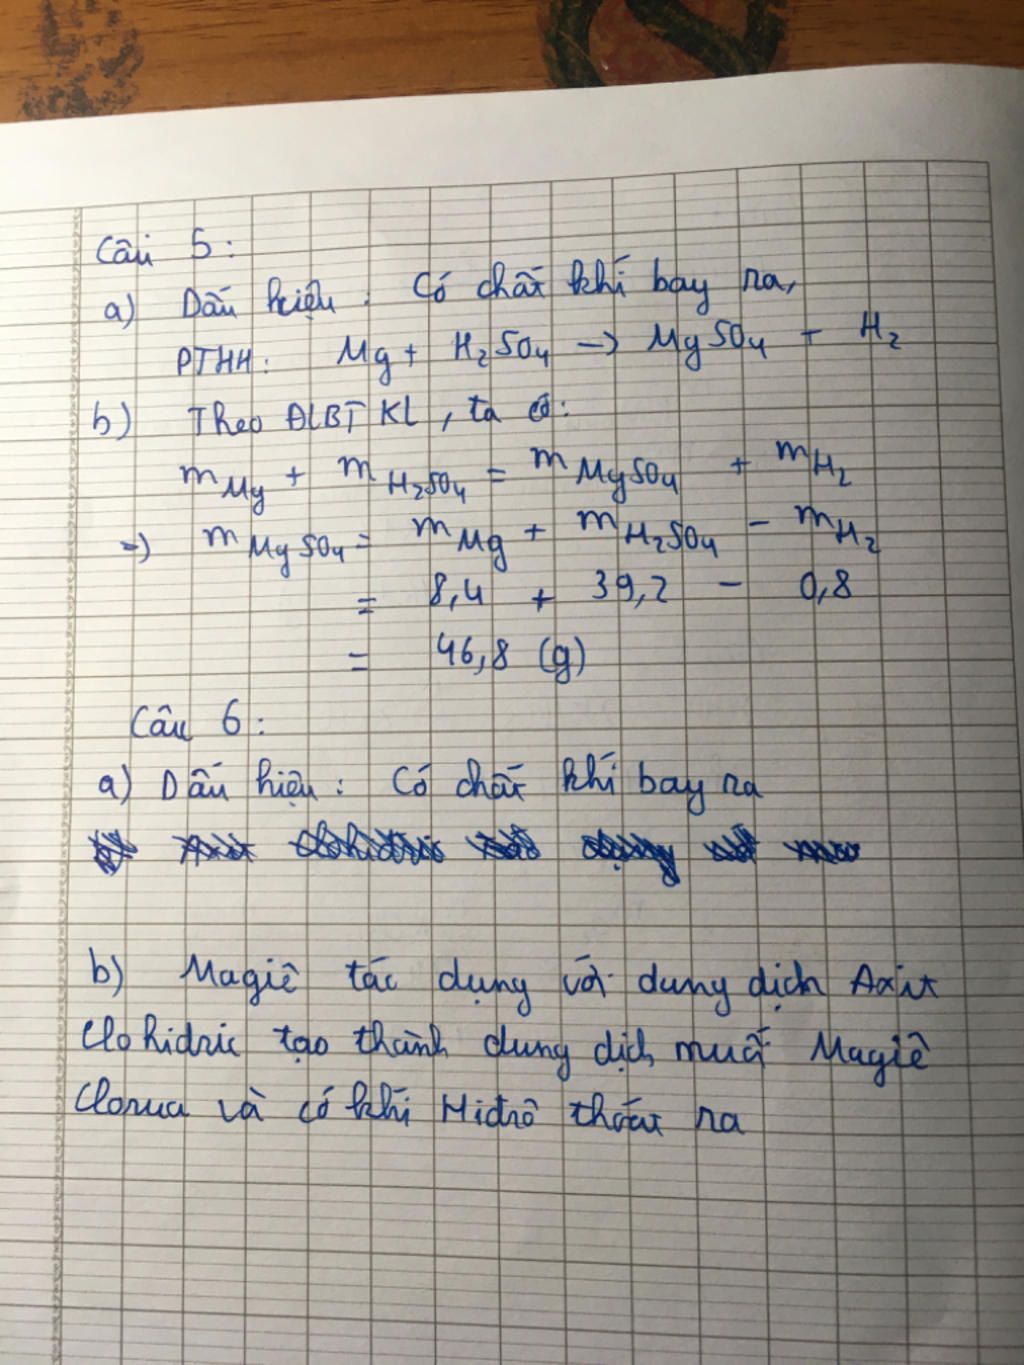 Câu 5:
a) Dấu hiệu: Có chất khí bay ra,
PTHH: Mg + H₂SO₄ → MgSO₄ + H₂
b) Theo ĐLBTKL, ta có:
m Mg + m H₂SO₄ = m MgSO₄ + m H₂
=) m MgSO₄ = m Mg + m H₂SO₄ - m H₂
= 8,4 + 39,2 - 0,8
= 46,8 (g)
Câu 6:
a) Dấu hiệu: Có chất khí bay ra
b) Magiê tác dụng với dung dịch Axit
Clohidric tạo thành dung dịch muối Magiê
Clorua và có khí Hiđrô thoát ra